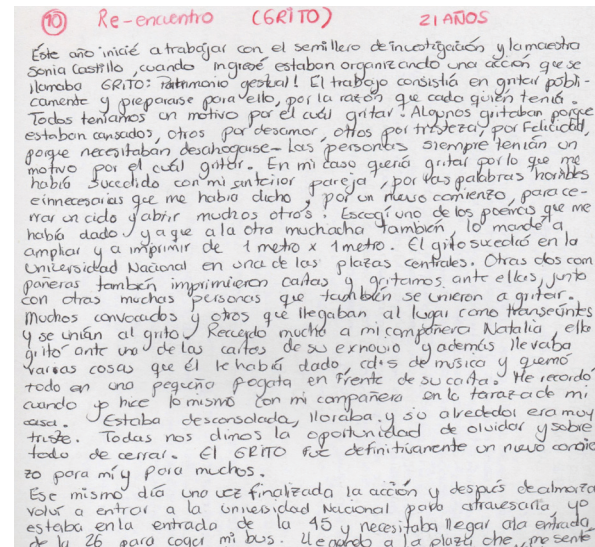 10 Re-encuentro (GRITO) 21 AÑOS
Este año inicié a trabajar con el semillero de investigación y la maestra
Sonia Castillo, cuando ingresé estaban organizando una acción que se
llamaba GRITO: Patrimonio gestual! El trabajo consistía en gritar públi-
camente y prepararse para ello, por la razón que cada quién tenía.
Todos teníamos un motivo por el cuál gritar. Algunos gritaban porque
estaban cansados, otros por desamor, otros por tristeza, por Felicidad,
porque necesitaban desahogarse - Las personas siempre tenían un
motivo por el cuál gritar. En mi caso quería gritar por lo que me
había sucedido con mi anterior pareja, por las palabras horribles
e innecesarias que me había dicho, por un nuevo comienzo, para ce-
rrar un ciclo y abrir muchos otros. Escogí uno de los poemas que me
había dado y a que a la otra muchacha también, lo mandé a
ampliar y a imprimir de 1 metro x 1 metro. El grito sucedió en la
Universidad Nacional en una de las plazas centrales. Otras dos com
pañeras también imprimieron cartas y gritamos ante ellas, junto
con otras muchas personas que también se unieron a gritar.
Muchos convocados y otros que llegaban al lugar como transeúntes
y se unían al grito. Recuerdo mucho a mi compañera Natalia, ella
gritó ante una de las cartas de su exnovio y además llevaba
varias cosas que él le había dado, cd's de música y quemó
todo en una pequeña fogata en frente de su carta. Me recordó
cuando yo hice lo mismo con mi compañera en la taraza de mi
casa. Estaba desconsolada, lloraba y su alrededor era muy
triste. Todas nos dimos la oportunidad de olvidar y sobre
todo de cerrar. El GRITO fue definitivamente un nuevo
zo para mí y para muchos.
Ese mismo día una vez finalizada la acción y después de almorzar
volví a entrar a la Universidad Nacional para atravesarla, yo
estaba en la entrada de la 45 y necesitaba llegar a la entrada
de la 26 para coger mi bus. Llegando a la plaza che, me senté